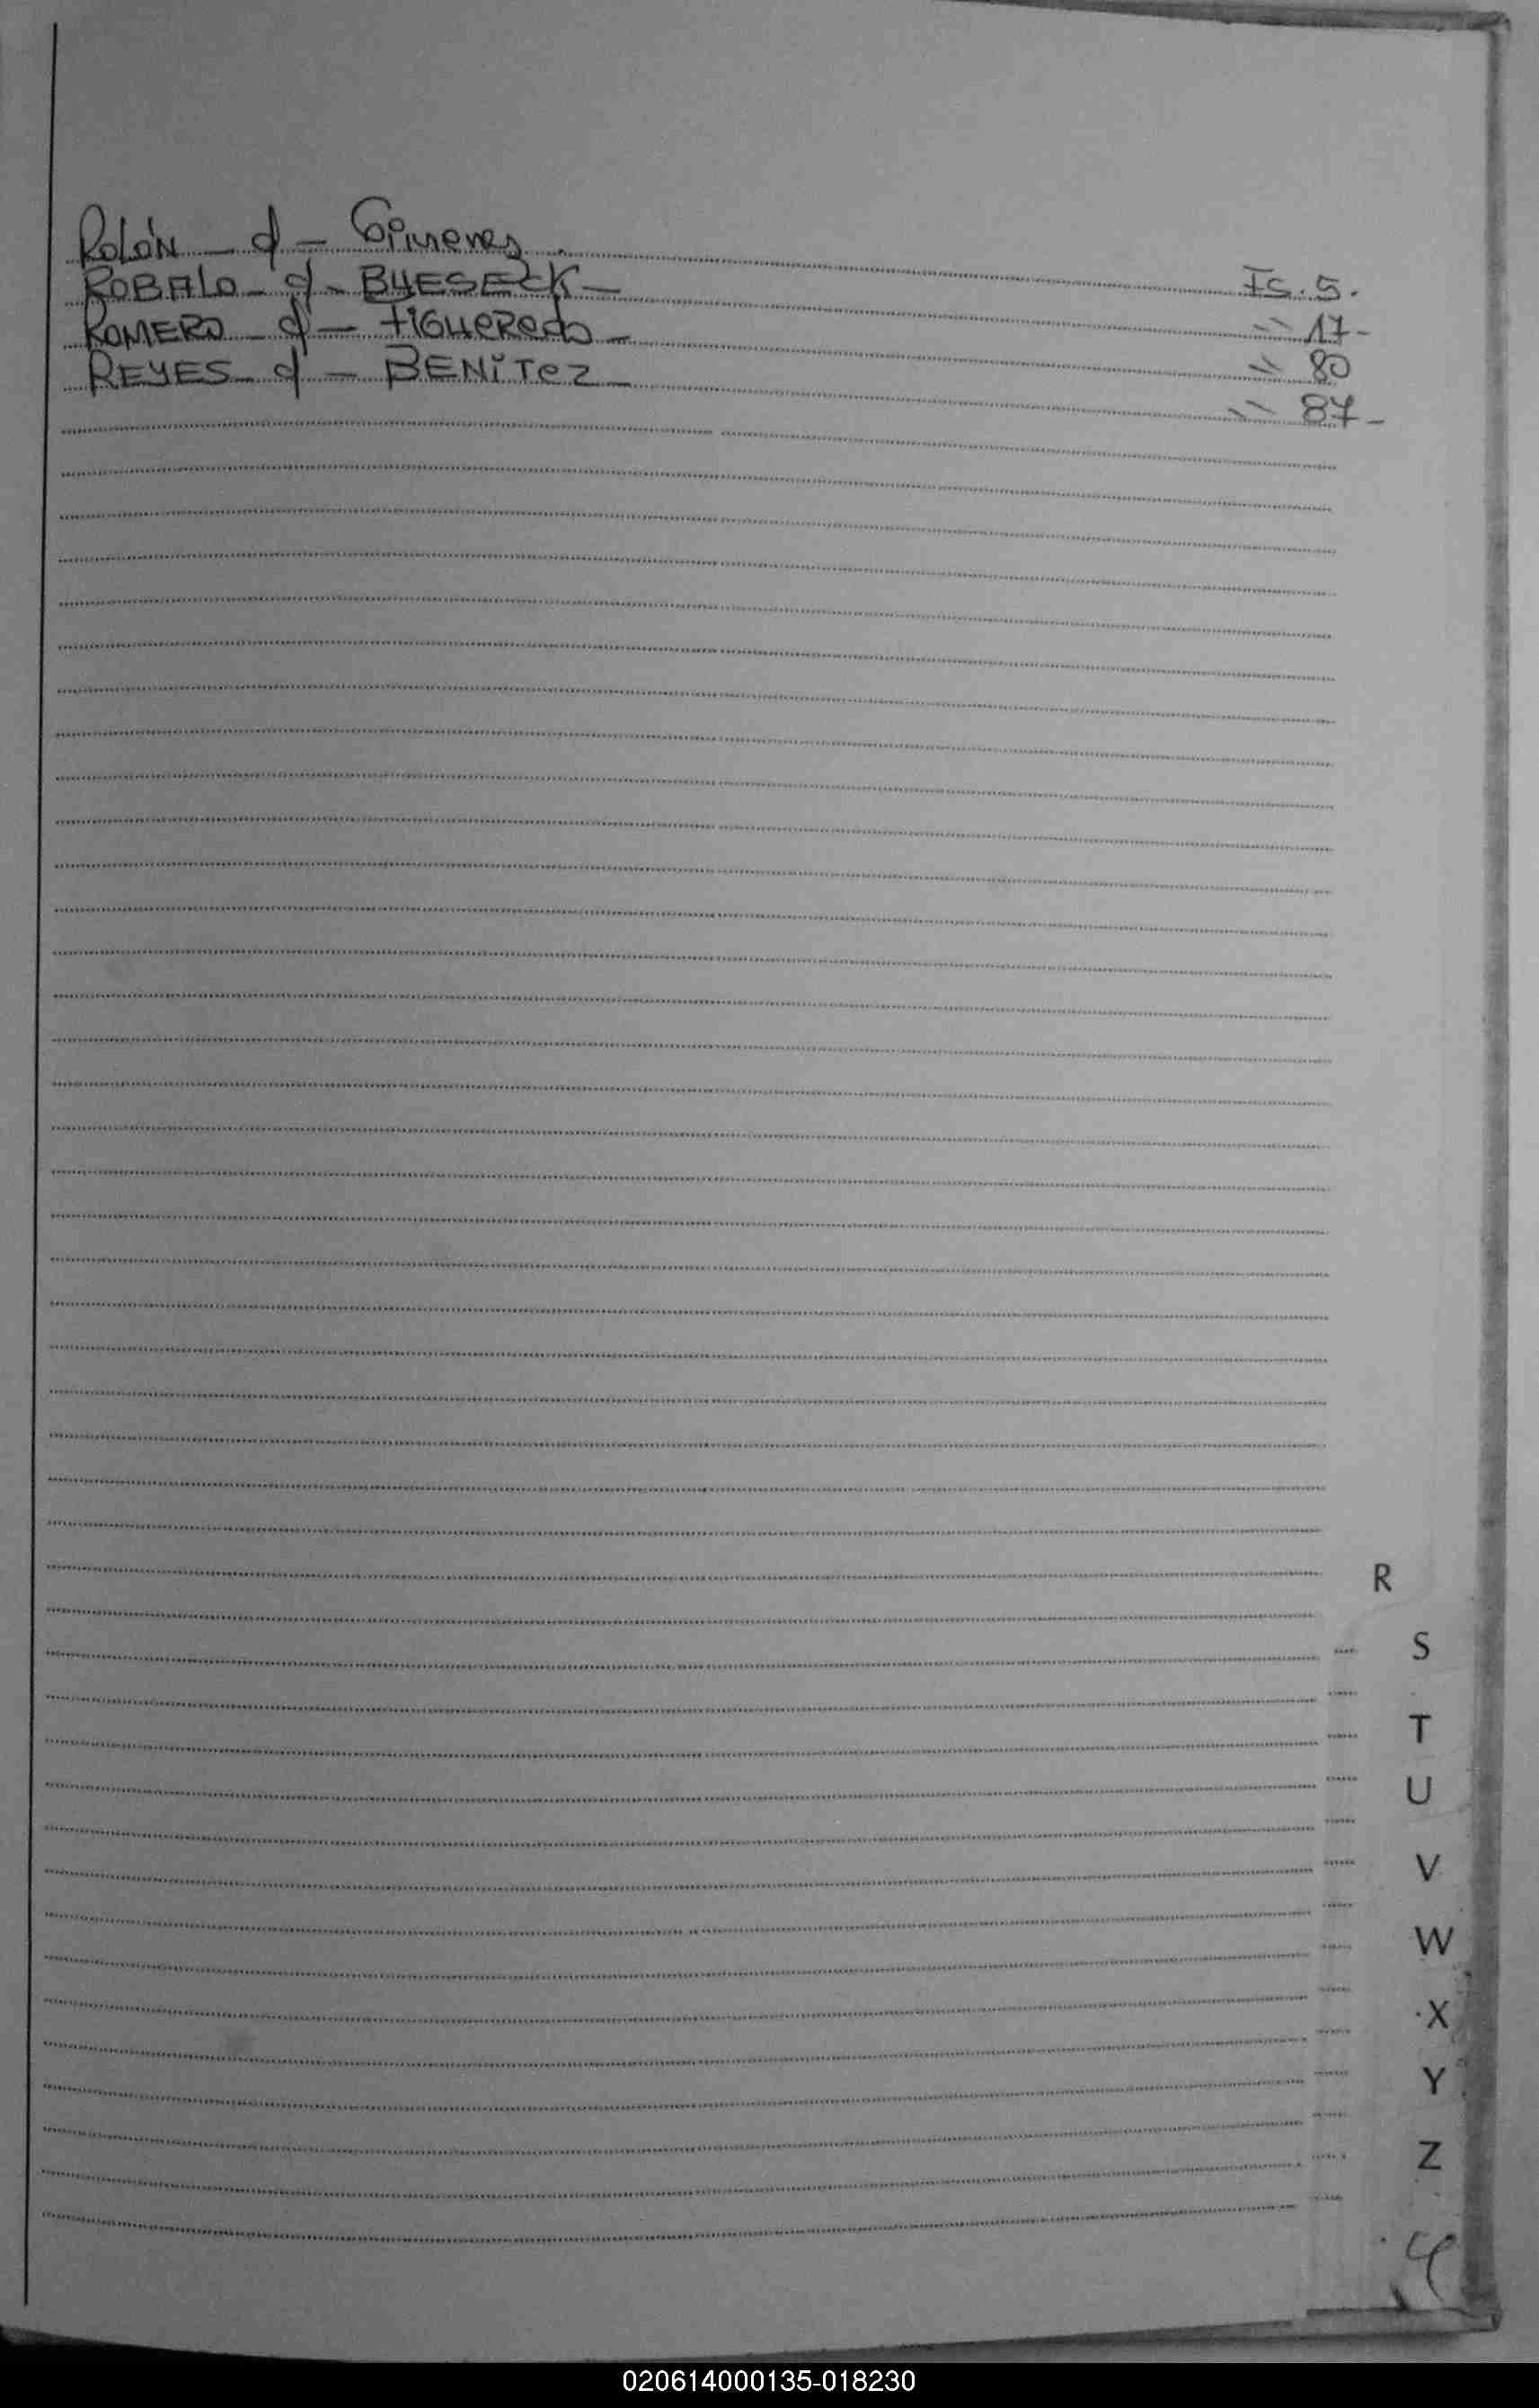 Rolón - c/ - Gimenes. Fs. 5.
ROBALO - c/ - BUESECK - " 17 -
ROMERO - c/ - FIGUEREDO - " 80
REYES - c/ - BENITEZ - " 87 -
R
S
T
U
V
W
X
Y
Z
020614000135-018230